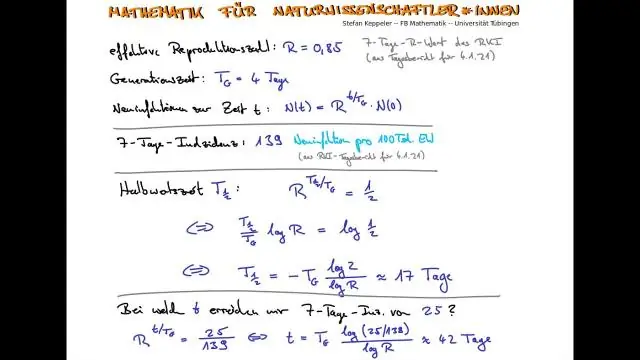 MATHEMATIK FÜR NATURWISSENSCHAFTLER*INNEN
Stefan Keppeler -- FB Mathematik -- Universität Tübingen
effektive Reproduktionszahl: R = 0,85
7-Tage-R-Wert des RKI
(aus Tagesbericht für 4.1.21)
Generationszeit: T_G = 4 Tage
Neuinfektionen zur Zeit t: N(t) = R^{t/T_G} · N(0)
7-Tage-Indzidenz: 139 Neuinfektion pro 100Tsd. EW
(aus RKI-Tagesbericht für 4.1.21)
Halbwertszeit T_{1/2}: R^{T_{1/2}/T_G} = 1/2
⇔ T_{1/2}/T_G log R = log 1/2
⇔ T_{1/2} = -T_G log 2/log R ≈ 17 Tage
Bei welch t erreichen wir 7-Tage-Inz. von 25?
R^{t/T_G} = 25/139 ⇔ t = T_G log(25/139)/log R ≈ 42 Tage